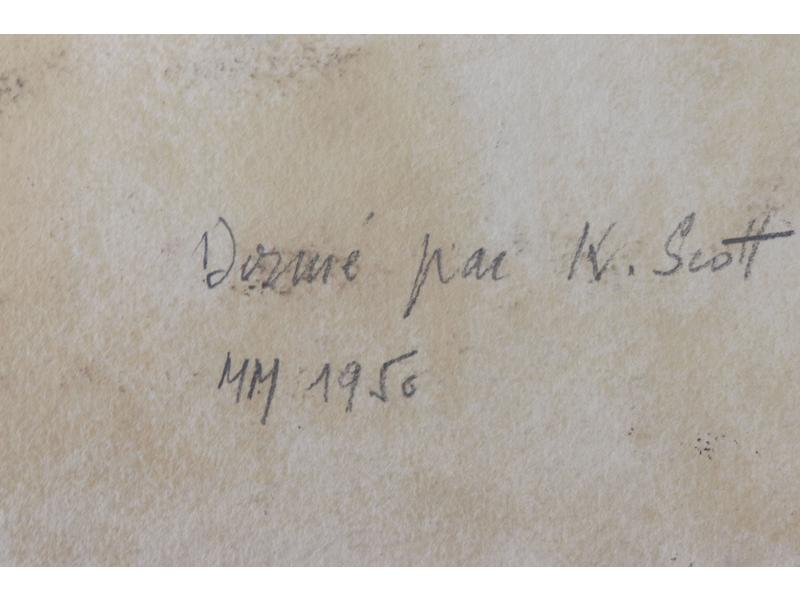 Donné par K. Scott
MM 1950